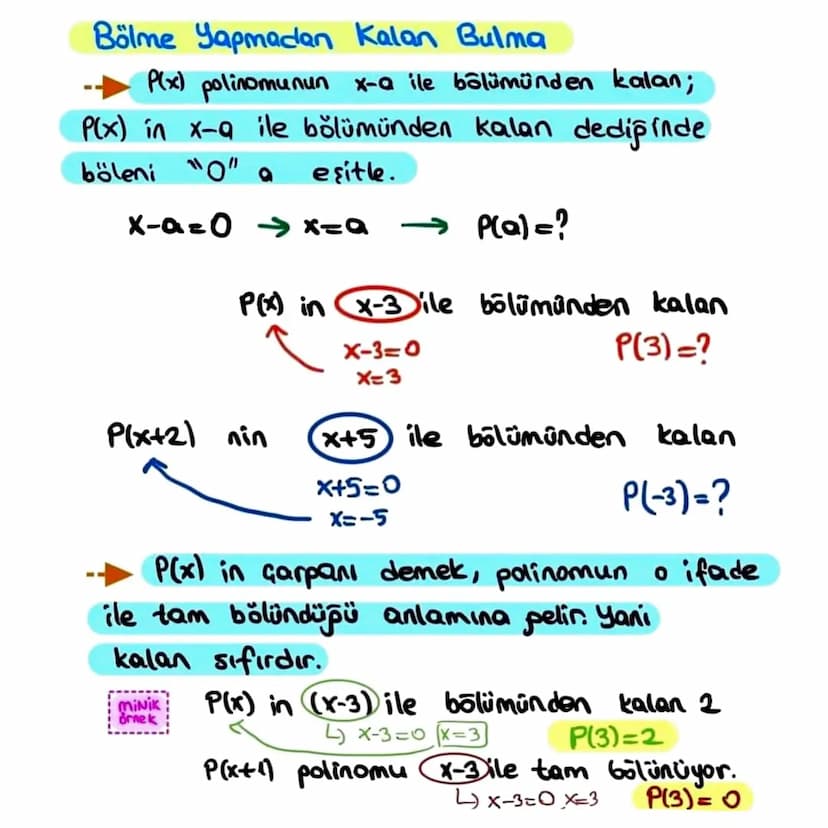 Bölme Yapmadan Kalan Bulma
P(x) polinomunun x-a ile bölümünden kalan;
P(x) in x-a ile bölümünden kalan dediğinde
böleni "0" a eşitle.
x-a=0 → x=a → P(a)=?
P(x) in x-3 ile bölümünden kalan
x-3=0 P(3)=?
x=3
P(x+2) nin x+5 ile bölümünden kalan
x+5=0 P(-3)=?
x=-5
P(x) in çarpanı demek, polinomun o ifade
ile tam bölündüğü anlamına gelir. Yani
kalan sıfırdır.
minik örnek
P(x) in (x-3) ile bölümünden kalan 2
↳ x-3=0 x=3 P(3)=2
P(x+1) polinomu x-3 ile tam bölünüyor.
↳ x-3=0 x=3 P(3)=0